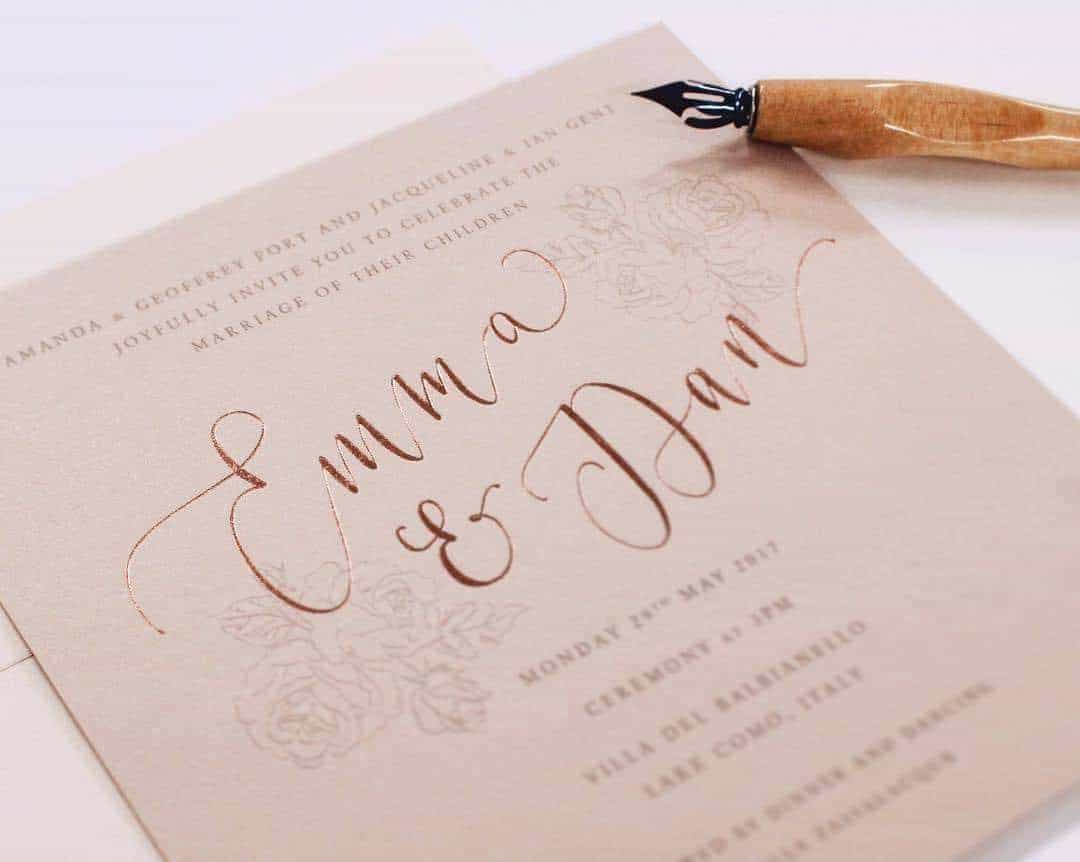 AMANDA & GEOFFREY PORT AND JACQUELINE & IAN GENT
JOYFULLY INVITE YOU TO CELEBRATE THE
MARRIAGE OF THEIR CHILDREN
Emma
& Dan
MONDAY MAY 2017
CEREMONY AT 3PM
VILLA DEL BALBIANELLO
LAKE COMO, ITALY
BY DINNER AND DANCING
PASSALACQUA